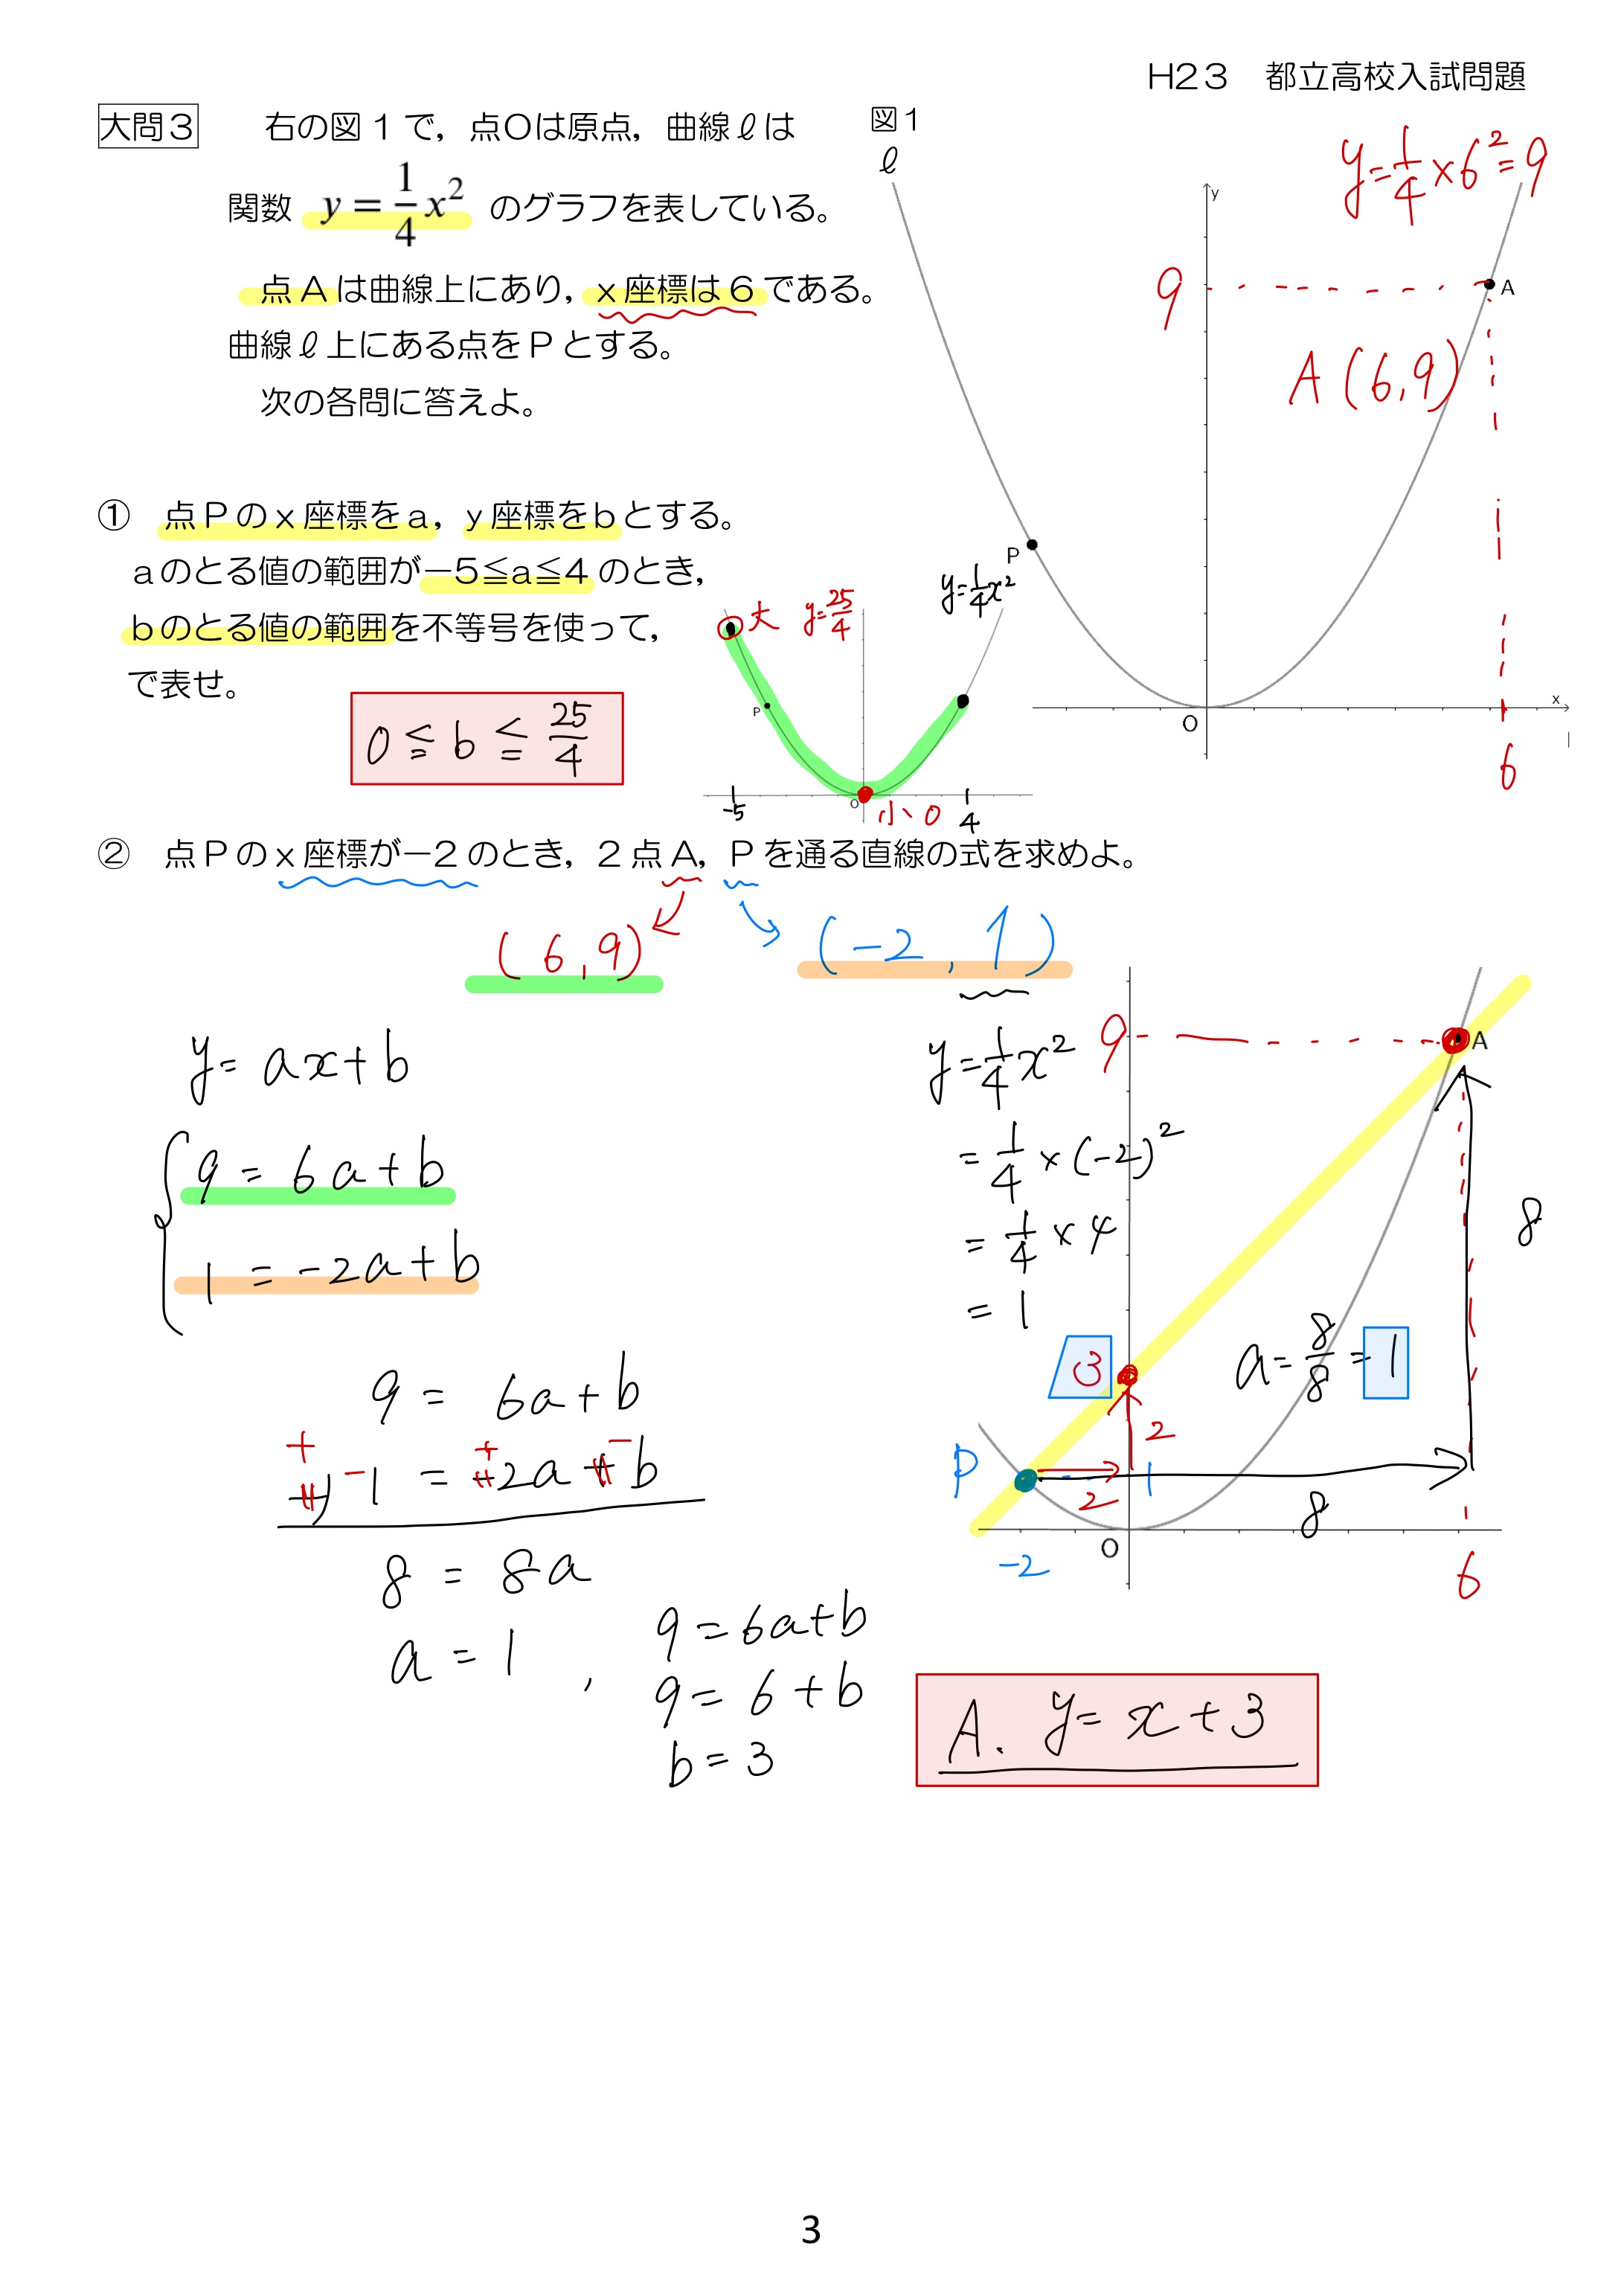 H23 都立高校入試問題
大問3 右の図1で，点Oは原点，曲線ℓは
関数 y = 1/4 x² のグラフを表している。
点Aは曲線上にあり，x座標は6である。
曲線ℓ上にある点をPとする。
次の各問に答えよ。
図1
ℓ
y
y=1/4×6²=9
9
A
A(6,9)
P
O
x
6
① 点Pのx座標をa，y座標をbとする。
aのとる値の範囲が−5≦a≦4のとき，
bのとる値の範囲を不等号を使って，
で表せ。
0≦b≦25/4
大 y=25/4
y=1/4x²
P
-5
O
小 0
4
② 点Pのx座標が−2のとき，2点A，Pを通る直線の式を求めよ。
(6,9)
(-2,1)
y=ax+b
9=6a+b
1=-2a+b
9=6a+b
+
-)-1=+2a-b
8=8a
a=1,
9=6a+b
9=6+b
b=3
y=1/4x²
=1/4×(-2)²
=1/4×4
=1
9
A
8
3
a=8/8=1
2
P
2
1
8
O
-2
6
A. y=x+3
3